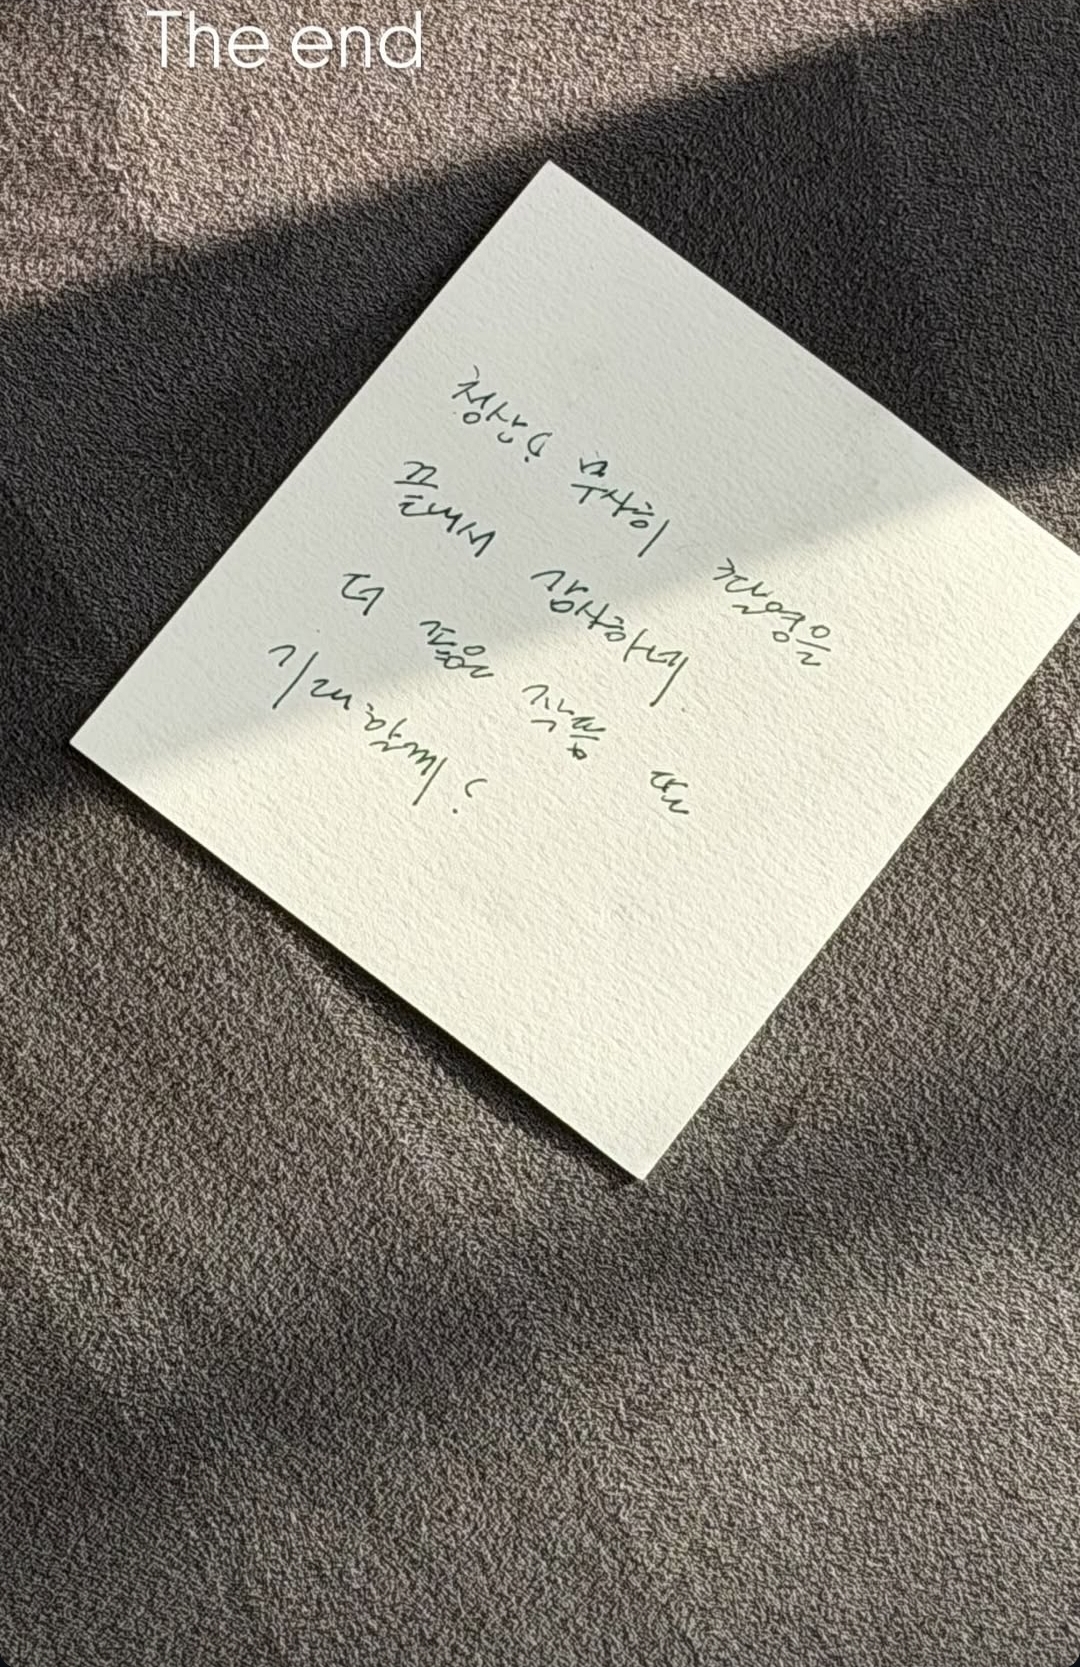 The end
청산!! 무사히 촬영을
끝내서 감사하네.
더 좋은 작품 또
기대할께!